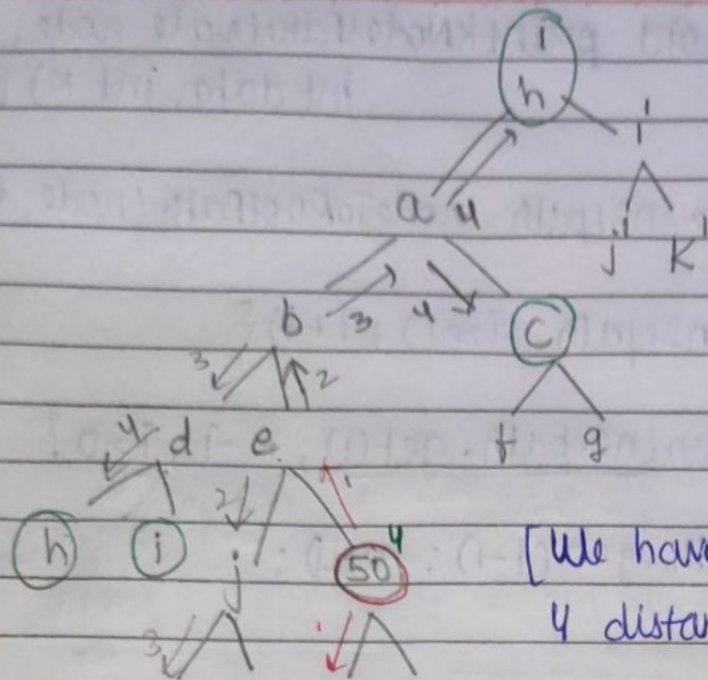 i
h
i'
a 4
j' k'
b 3 4 c
3 2
4 d e f g
2 1
h i j 50 4
[We hav
3 1 4 distan